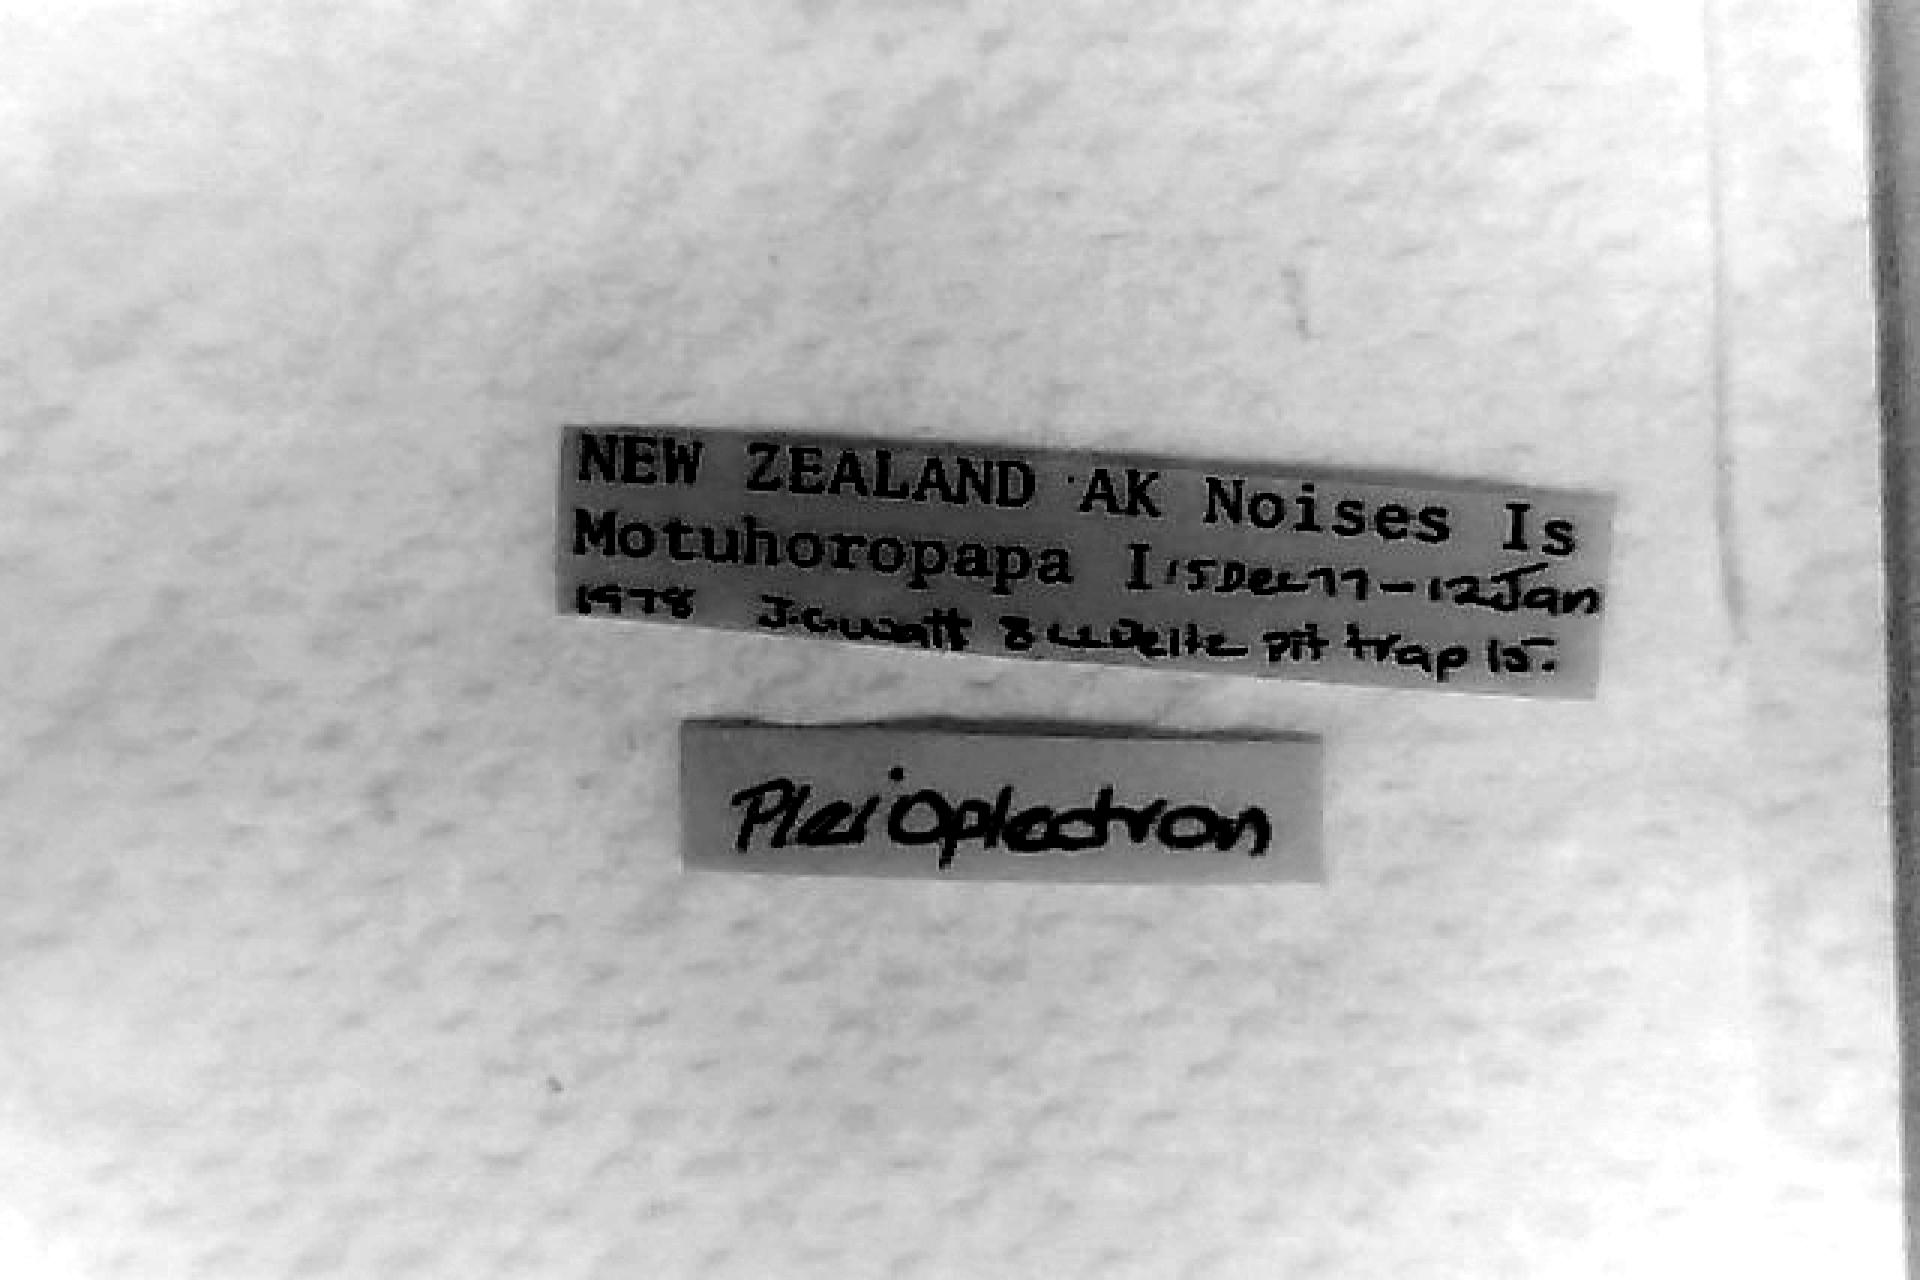 NEW ZEALAND AK Noises Is
Motuhoropapa I 15Dec77-12Jan
1978 J.G.Watt 8 pit trap 15.
Pleioplectron